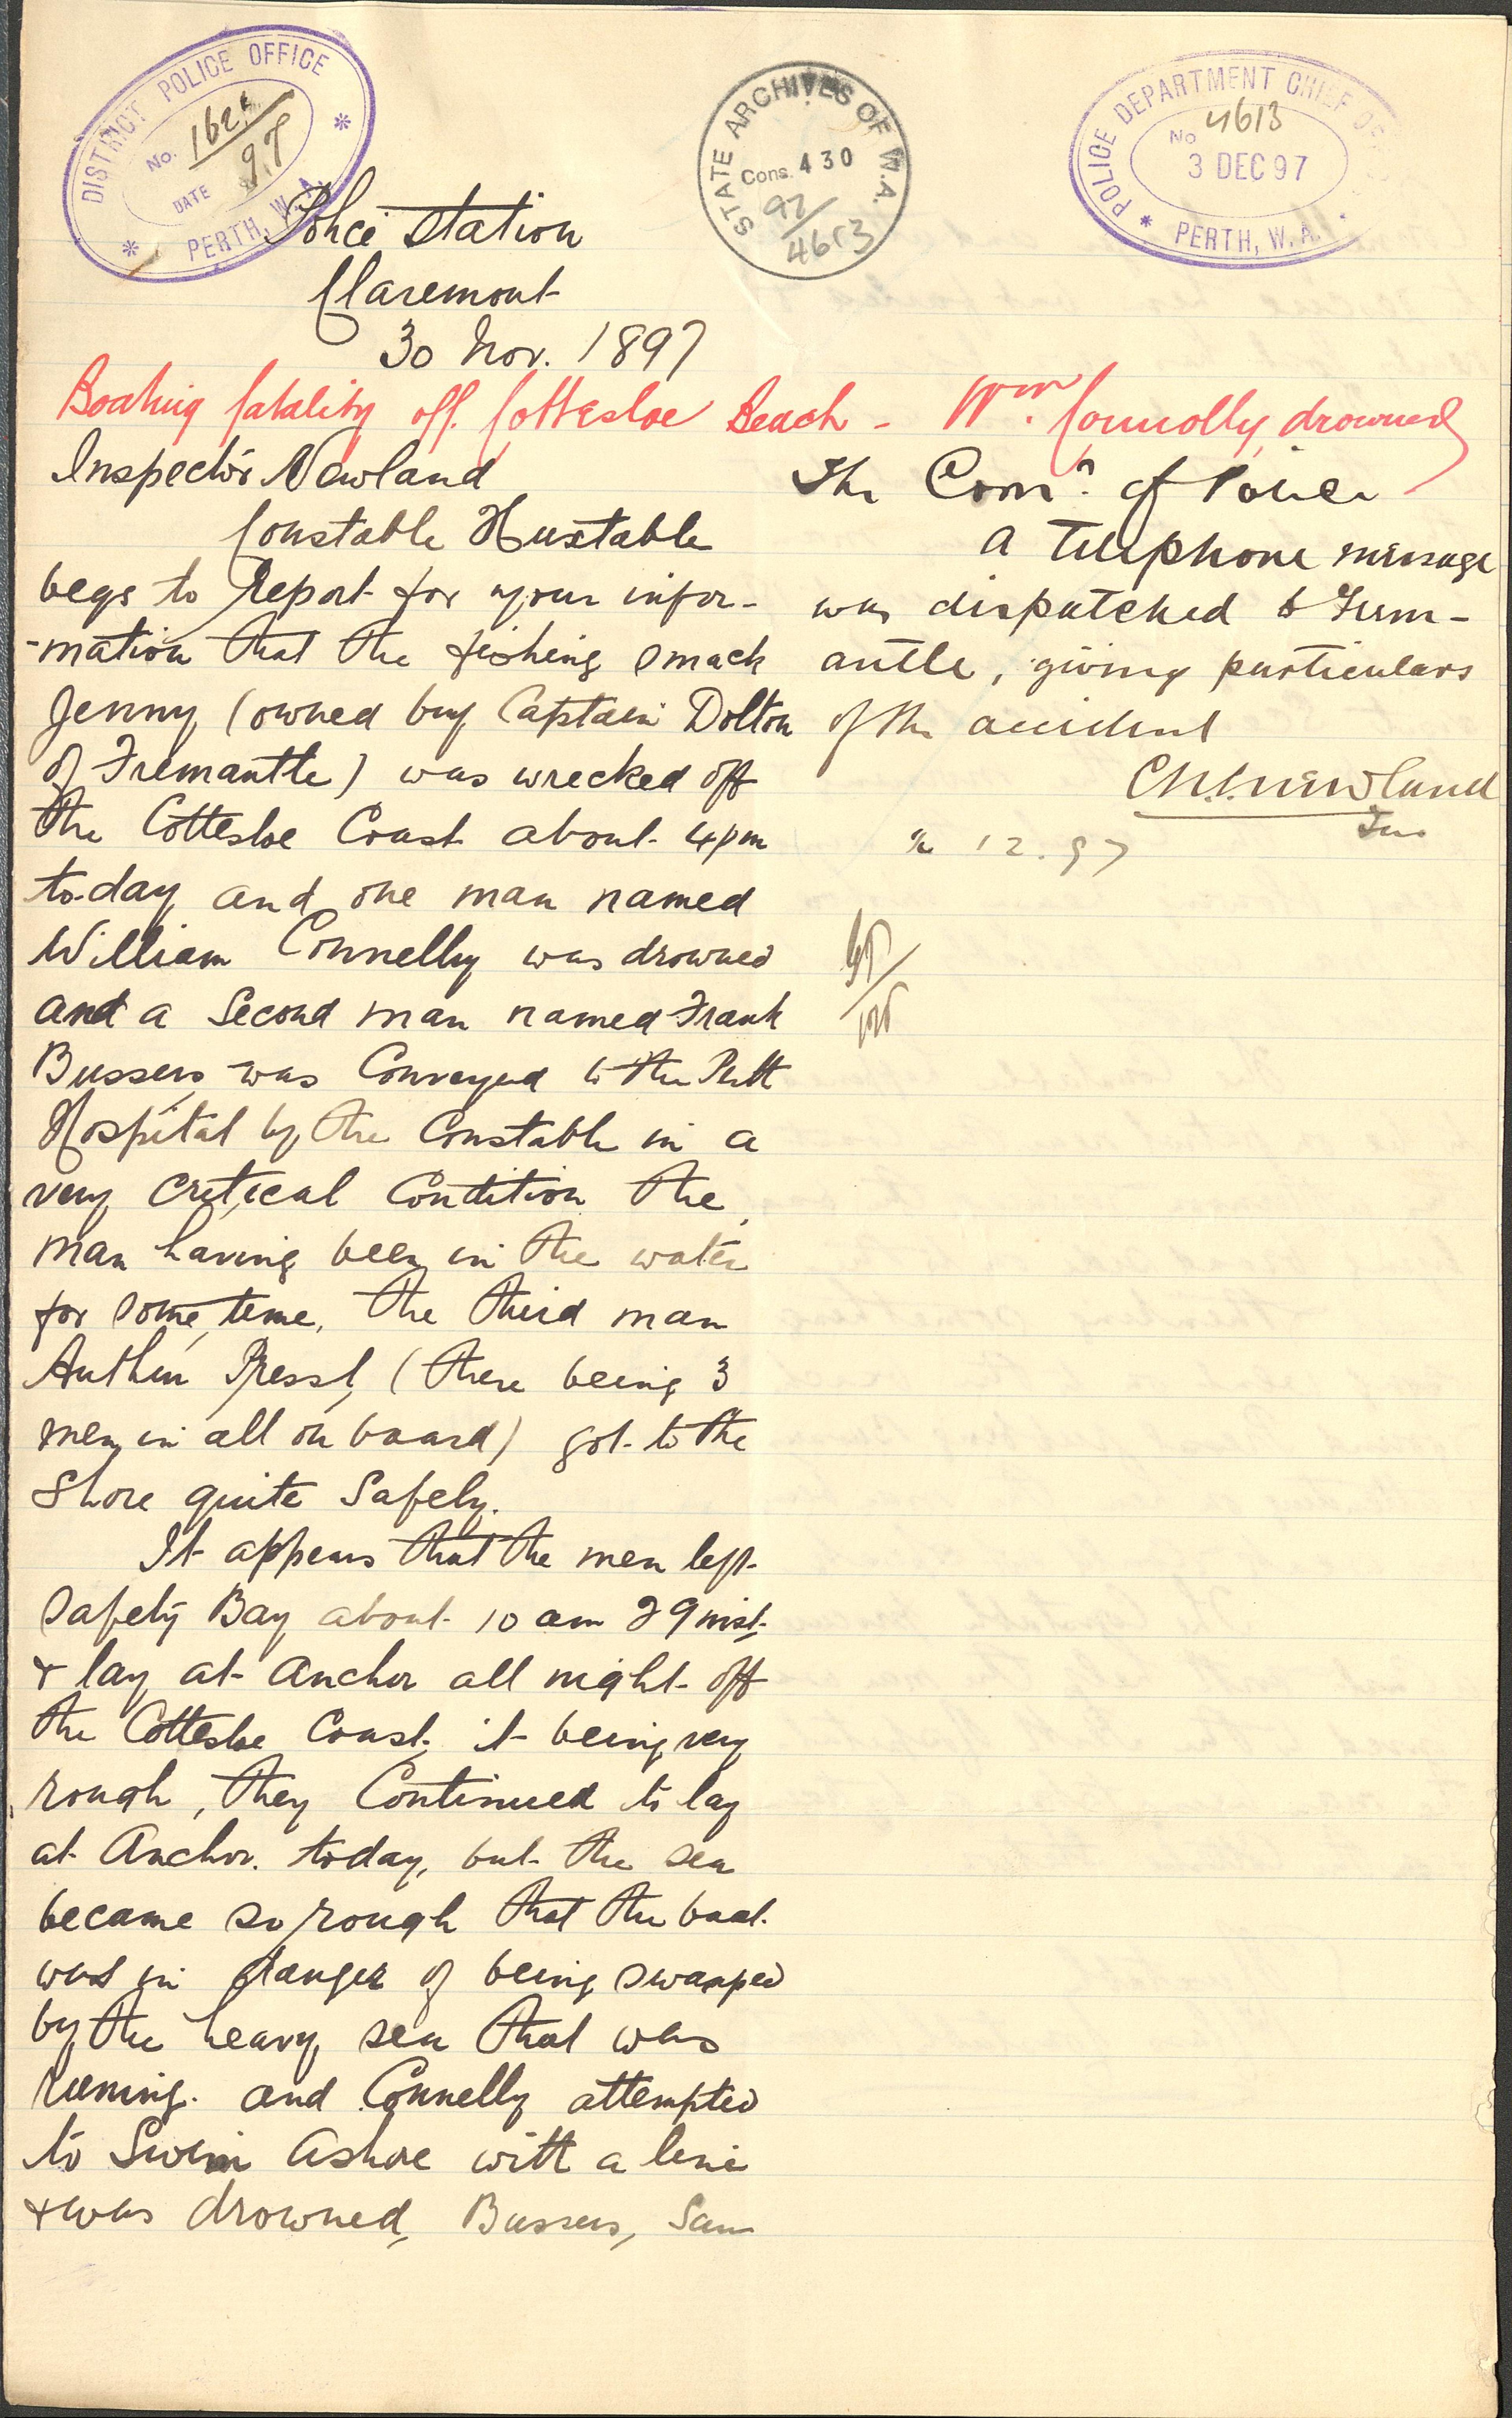 DISTRICT POLICE OFFICE
No.
97
DATE
PERTH, W.A.
STATE ARCHIVES OF W.A.
Cons. 430
97/4613
POLICE DEPARTMENT CHIEF
No 4613
3 DEC 97
PERTH, W.A.
Police Station
Claremont
30 Nov. 1897
Boating fatality off Cottesloe Beach - Wm. Connolly drowned
Inspector Newland
Constable Huxtable
begs to Report for your infor-
-mation that the fishing smack
Jenny (owned by Captain Dolton
of Fremantle) was wrecked off
the Cottesloe Coast about 4pm
to-day and one man named
William Connelly was drowned
and a Second man named Frank
Bussers was Conveyed to the Perth
Hospital by the Constable in a
very critical Condition the
man having been in the water
for some time, the third man
Pressl (there being 3
men in all on board) got to the
Shore quite Safely.
It appears that the men left
Safety Bay about 10 am 29 inst
& lay at anchor all night off
the Cottesloe Coast, it being very
rough, they Continued to lay
at Anchor today, but the sea
became so rough that the boat
was in danger of being swamped
by the heavy sea that was
runing. and Connelly attempted
to Swim Ashore with a line
& was drowned, Bussers, Saw
The Comr. of Police
a Telephone message
was dispatched to Frem-
antle, giving particulars
of the accident
Newland
12.97